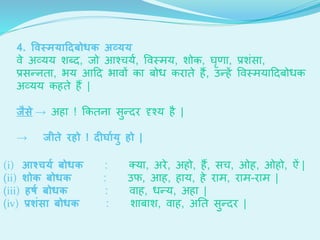 4. विस्मयादिबोधक अव्यय
वे अव्यय शब्द, जो आश्चर्य, विस्मय, शोक, घृणा, प्रशंसा,
प्रसन्नता, भय आदि भावों का बोध कराते हैं, उन्हें विस्मयादिबोधक
अव्यय कहते हैं |
जैसे → अहा ! कितना सुन्दर दृश्य है |
→ जीते रहो ! दीर्घायु हो |
(i) आश्चर्य बोधक : क्या, अरे, अहो, हैं, सच, ओह, ओहो, ऐं |
(ii) शोक बोधक : उफ, आह, हाय, हे राम, राम-राम |
(iii) हर्ष बोधक : वाह, धन्य, अहा |
(iv) प्रशंसा बोधक : शाबाश, वाह, अति सुन्दर |